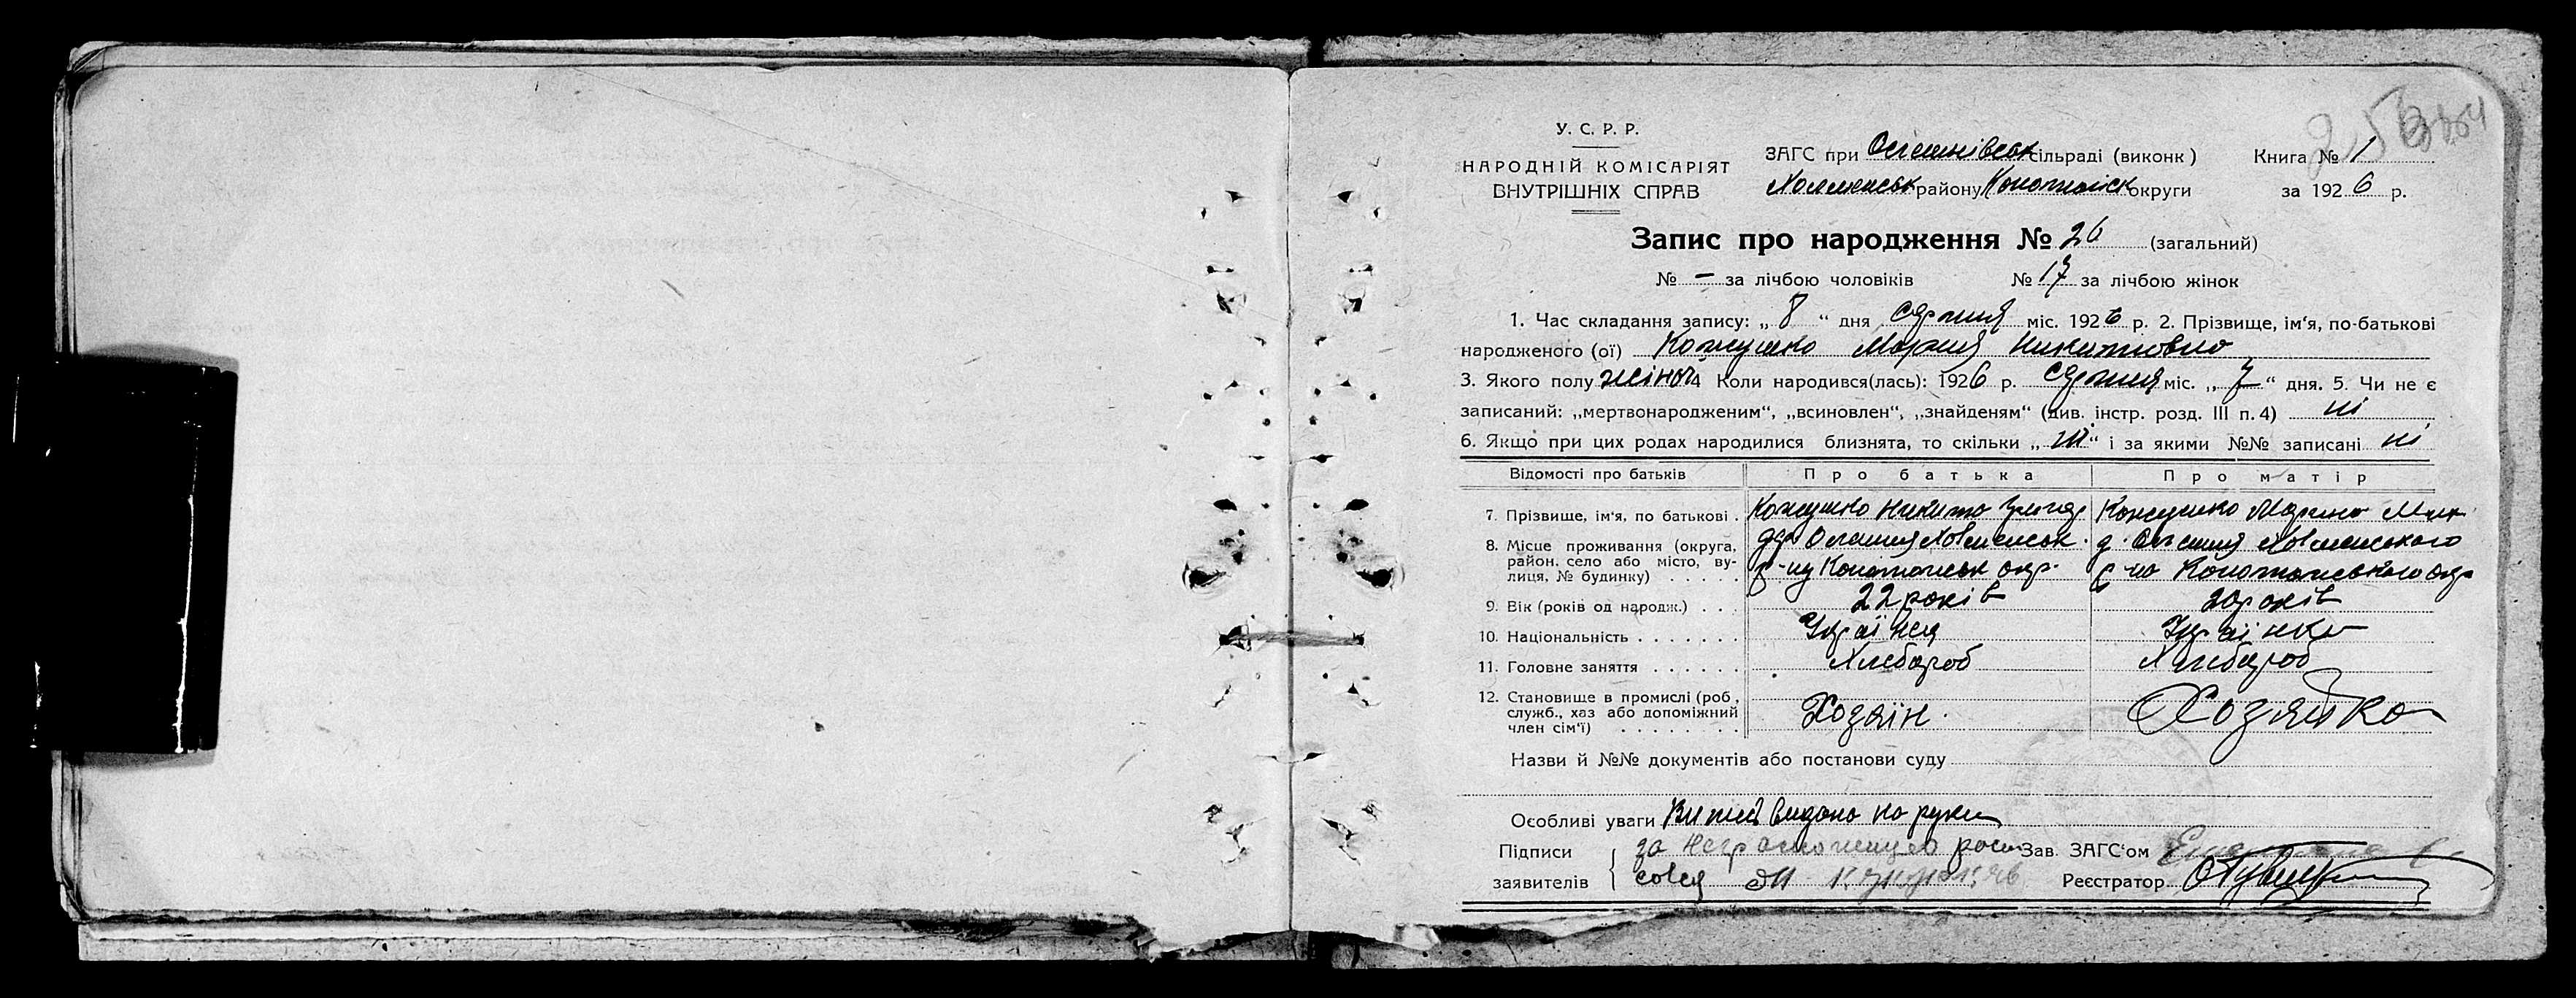 У. С. Р. Р.
НАРОДНІЙ КОМІСАРІЯТ
ВНУТРІШНІХ СПРАВ
ЗАГС при сільраді (виконк)
Холменськ району Конотопськ округи
Книга № 1
за 1926 р.
Запис про народження № 26 (загальний)
№ – за лічбою чоловіків № 17 за лічбою жінок
1. Час складання запису: „ 8 “ дня серпня міс. 1926 р. 2. Прізвище, ім'я, по-батькові
народженого (ої) Кожушко Мария Никитовна
3. Якого полу жіноч 4 Коли народився(лась): 1926 р. серпня міс. „ 7 “ дня. 5. Чи не є
записаний: „мертвонародженим“, „всиновлен“, „знайденям“ (див. інстр. розд. III п. 4) ні
6. Якщо при цих родах народилися близнята, то скільки „ ні “ і за якими №№ записані ні
Відомості про батьків Про батька Про матір
7. Прізвище, ім'я, по батькові . Кожушко Никита Кожушко Марина
8. Місце проживання (округа,
район, село або місто, ву-
лиця, № будинку) . . . . . р-ну Конотопськ окр. р-на Конотопського окр
9. Вік (років од народж.) . . . 22 років 20 років
10. Національність . . . . . . . Українця Українка
11. Головне заняття . . . . . . Хлебороб Хлібороб
12. Становище в промислі (роб.,
служб., хаз або допоміжний
член сім'ї) . . . . . . . . Хозяїн. Хозяйка
Назви й №№ документів або постанови суду
Особливі уваги Витяг видано на руки
Підписи за Зав. ЗАГС'ом
заявителів Реєстратор